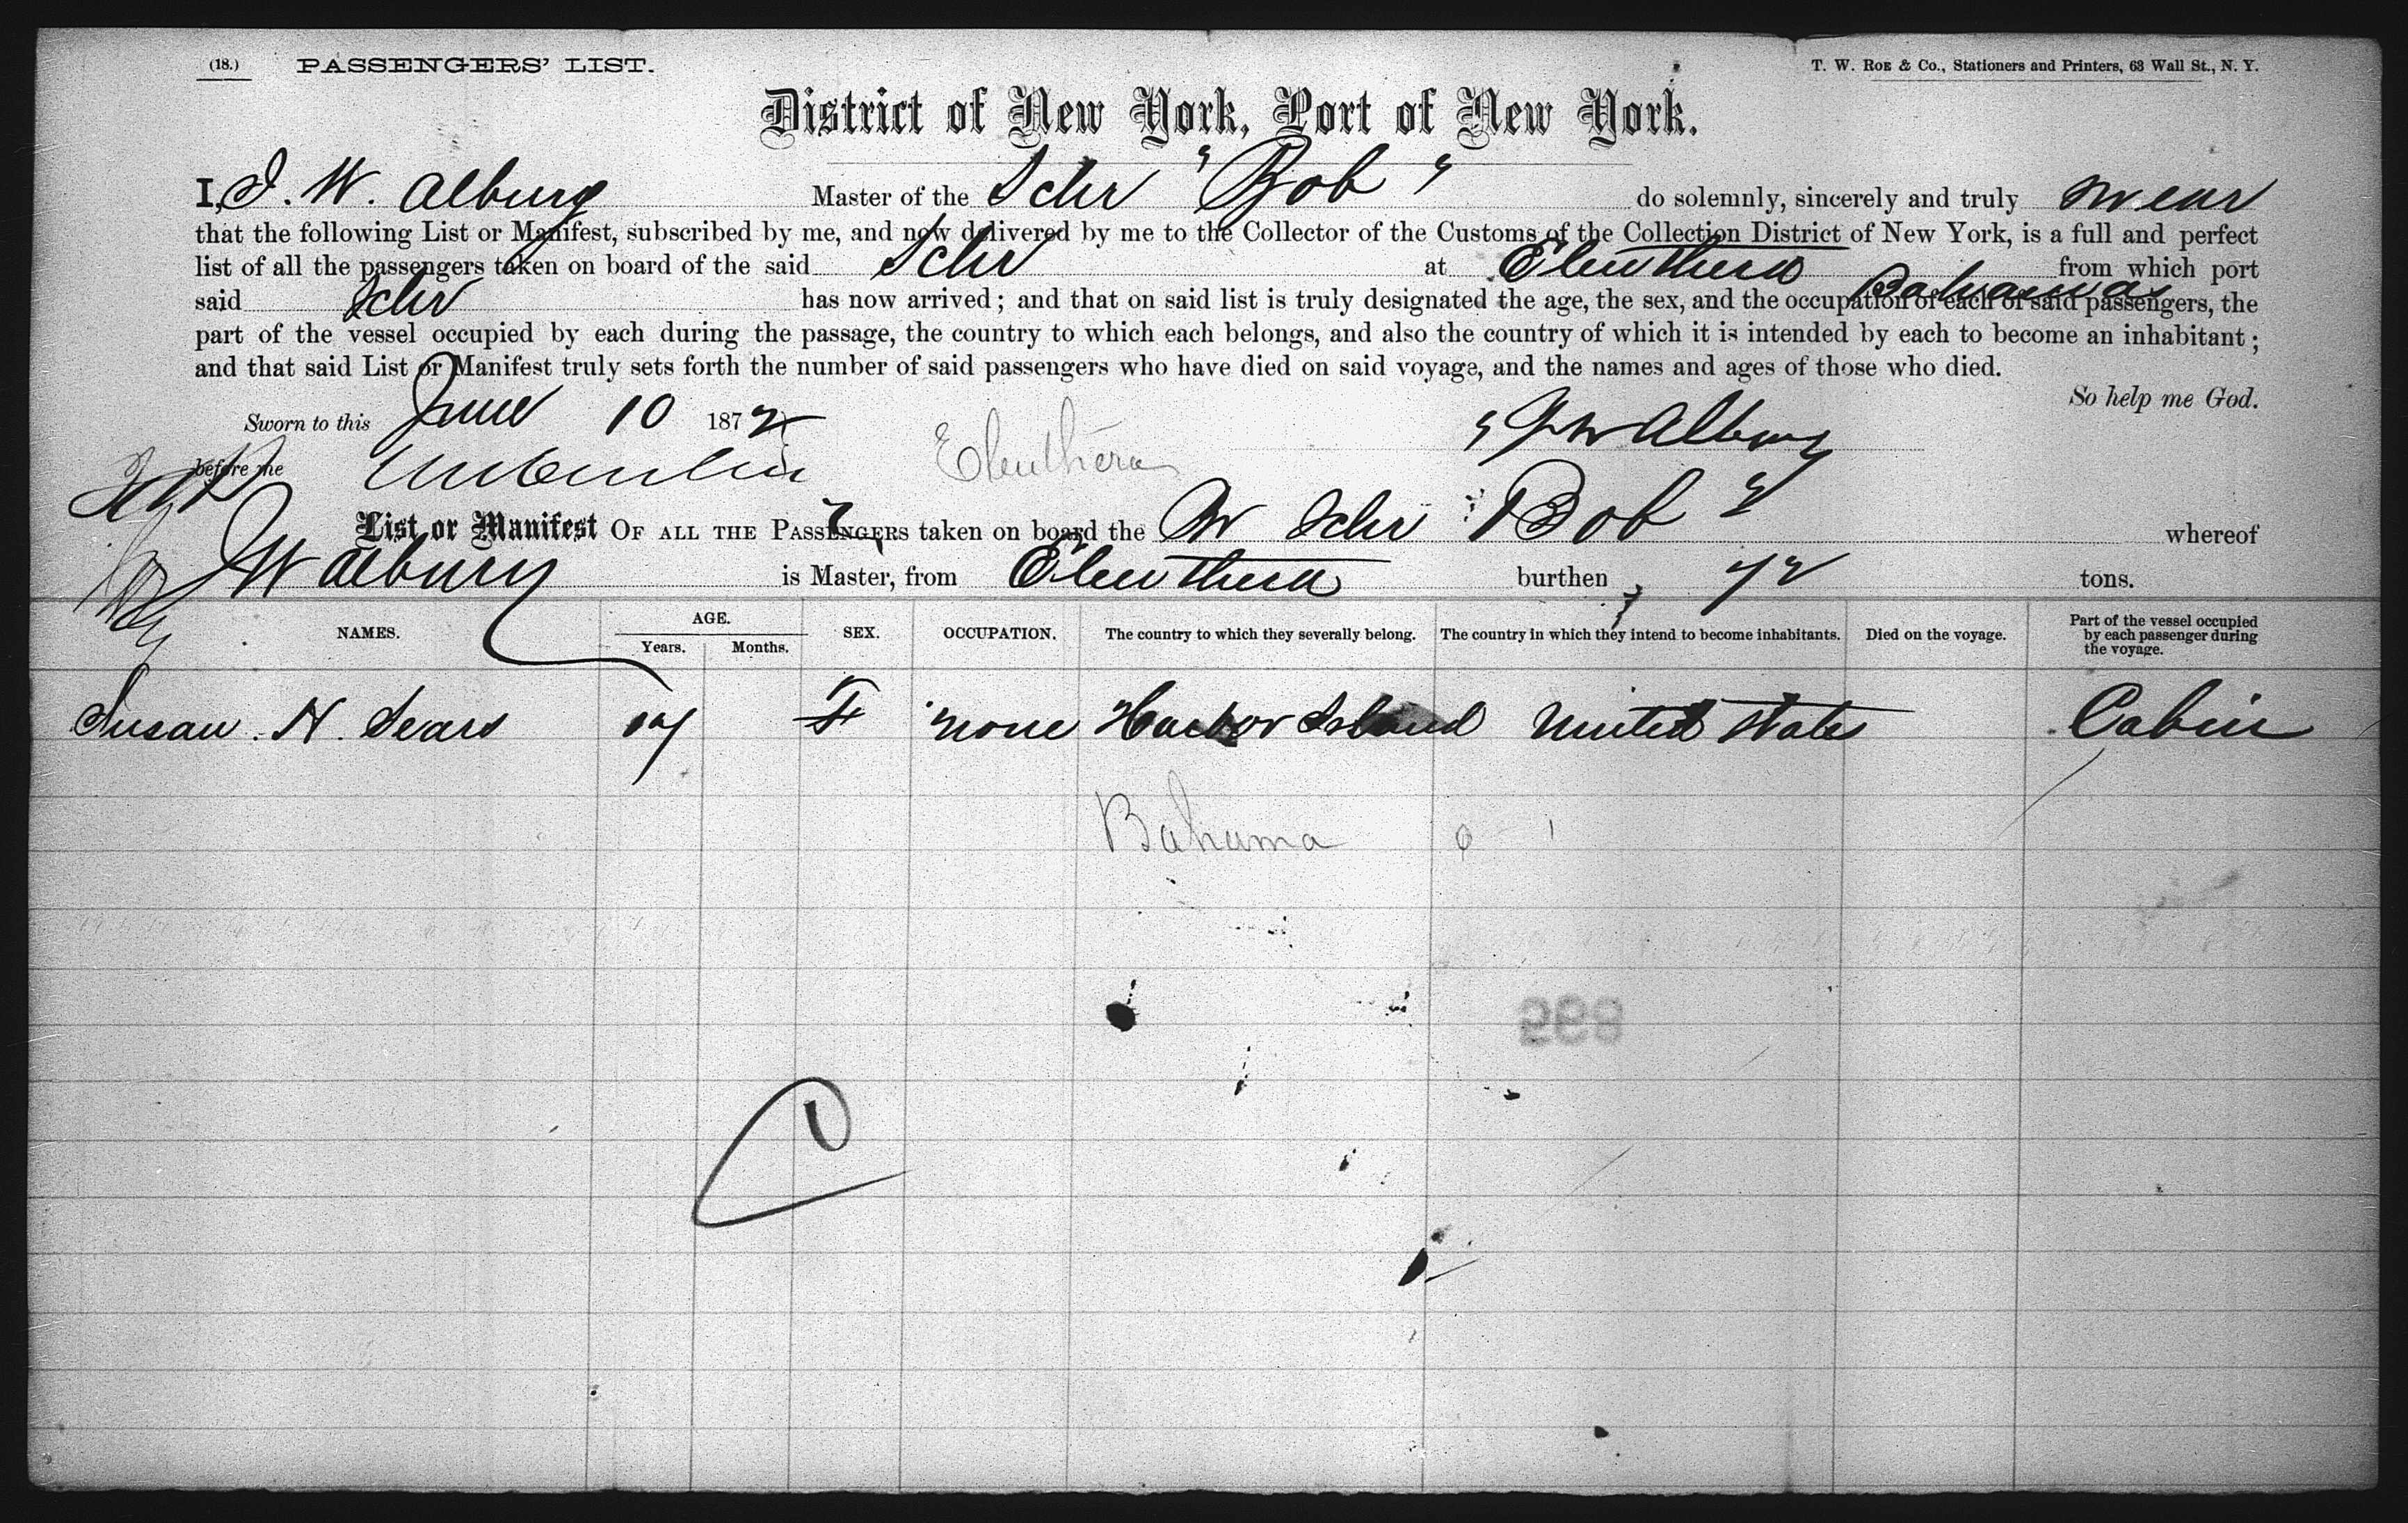 (18.) PASSENGERS' LIST. T. W. Roe & Co., Stationers and Printers, 63 Wall St., N. Y.
District of New York, Port of New York.
I, J. W. Albury Master of the Schr "Bob" do solemnly, sincerely and truly swear
that the following List or Manifest, subscribed by me, and now delivered by me to the Collector of the Customs of the Collection District of New York, is a full and perfect
list of all the passengers taken on board of the said Schr at Eleuthera Bahamas from which port
said Schr has now arrived; and that on said list is truly designated the age, the sex, and the occupation of each of said passengers, the
part of the vessel occupied by each during the passage, the country to which each belongs, and also the country of which it is intended by each to become an inhabitant;
and that said List or Manifest truly sets forth the number of said passengers who have died on said voyage, and the names and ages of those who died.
So help me God.
Sworn to this June 10 1872 Eleuthera J W Albury
before me
List or Manifest OF ALL THE PASSENGERS taken on board the Br Schr "Bob" whereof
J W Albury is Master, from Eleuthera burthen 72 tons.
NAMES. AGE. Years. Months. SEX. OCCUPATION. The country to which they severally belong. The country in which they intend to become inhabitants. Died on the voyage. Part of the vessel occupied by each passenger during the voyage.
Susan N. Sears 17 F none Harbor Island United States Cabin
Bahama
1